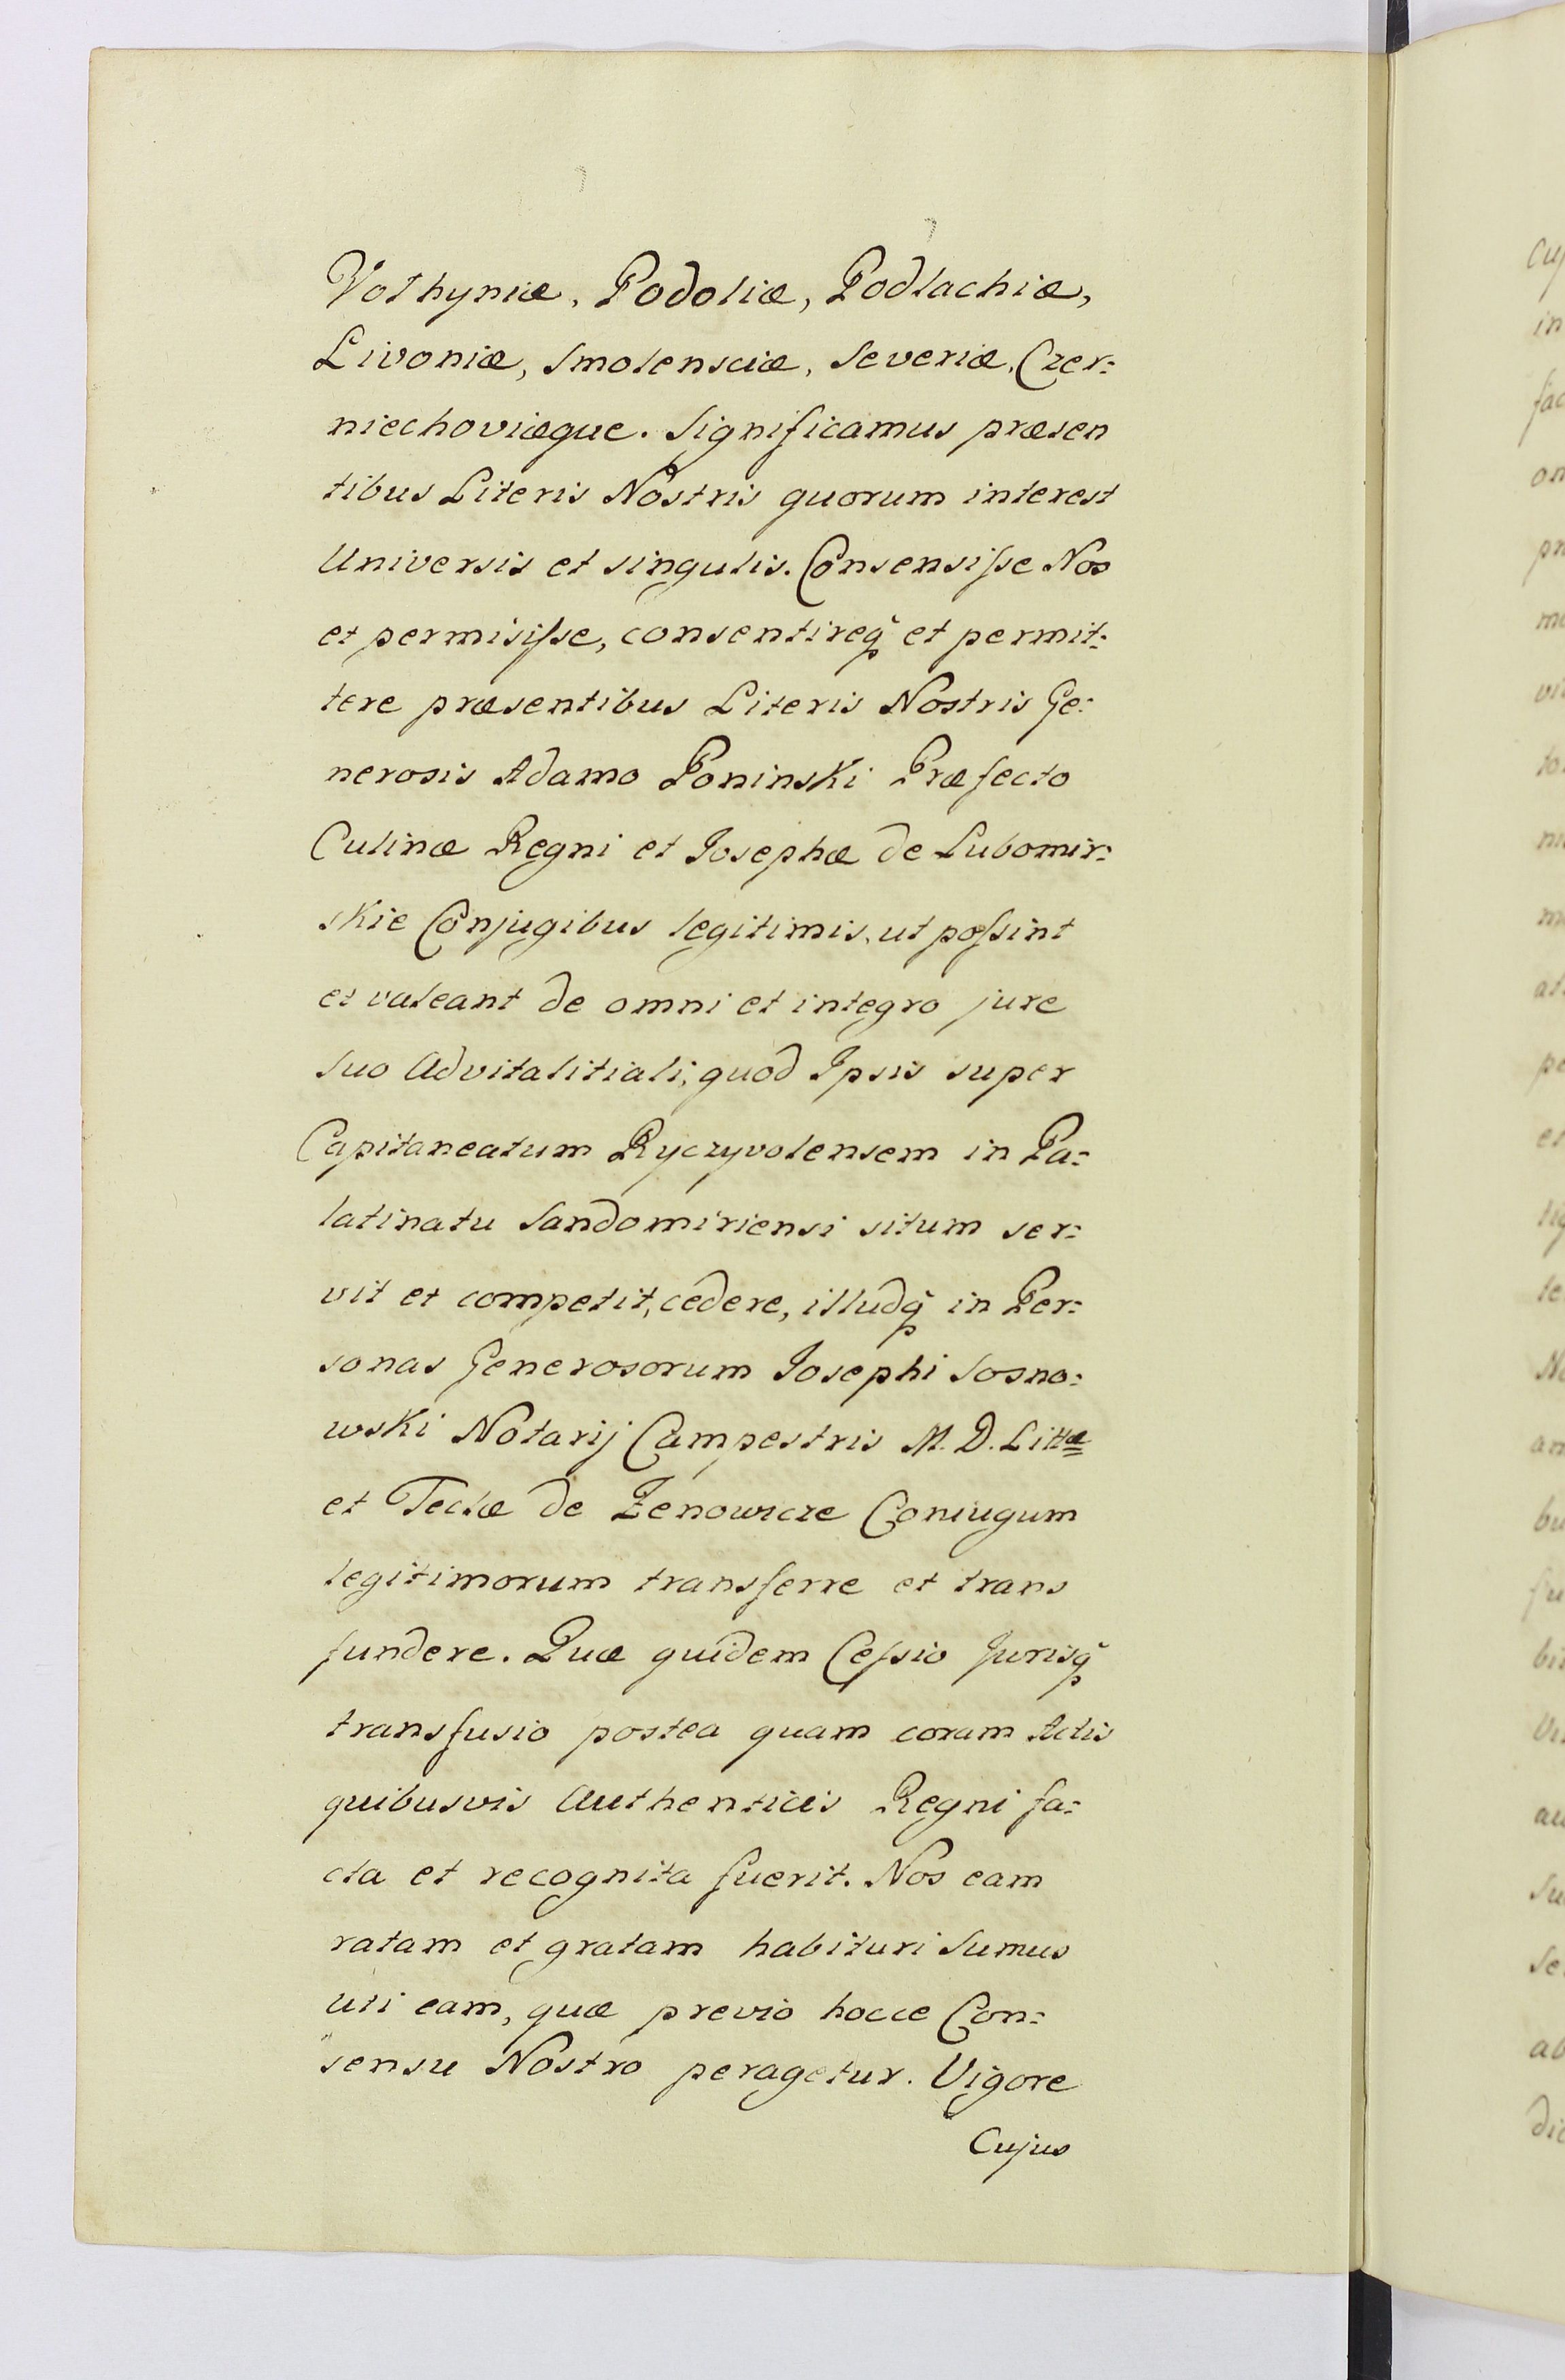 Volhyniæ, Podoliæ, Podlachiæ,
Livoniæ, Smolensciæ, Severiæ, Czer:
niechoviæque. Significamus præsen
tibus Literis Nostris quorum interest
Universis et singulis. Consensiſse Nos
et permisiſse, consentireq̃ et permit:
tere præsentibus Literis Nostris Ge:
nerosis Adamo Poninski Præfecto
Culinæ Regni et Josephæ de Lubomir:
skie Conjugibus legitimis, ut poſsint
et valeant de omni et integro jure
suo Advitalitiali, quod Ipsis super
Capitaneatum Ryczyvolensem in Pa:
latinatu Sandomiriensi situm ser:
vit et competit, cedere, illudq̃ in Per:
sonas Generosorum Josephi Sosno:
wski Notarij Campestris M. D. Littæ
et Teclæ de Zenowicze Coniugum
legitimorum transferre et trans
fundere. Quæ quidem Ceſsio Jurisq̃
transfusio postea quam coram Actis
quibusvis Authenticis Regni fa:
cta et recognita fuerit. Nos eam
ratam et gratam habituri Sumus
uti eam, quæ previo hocce Con:
sensu Nostro peragetur. Vigore
Cujus